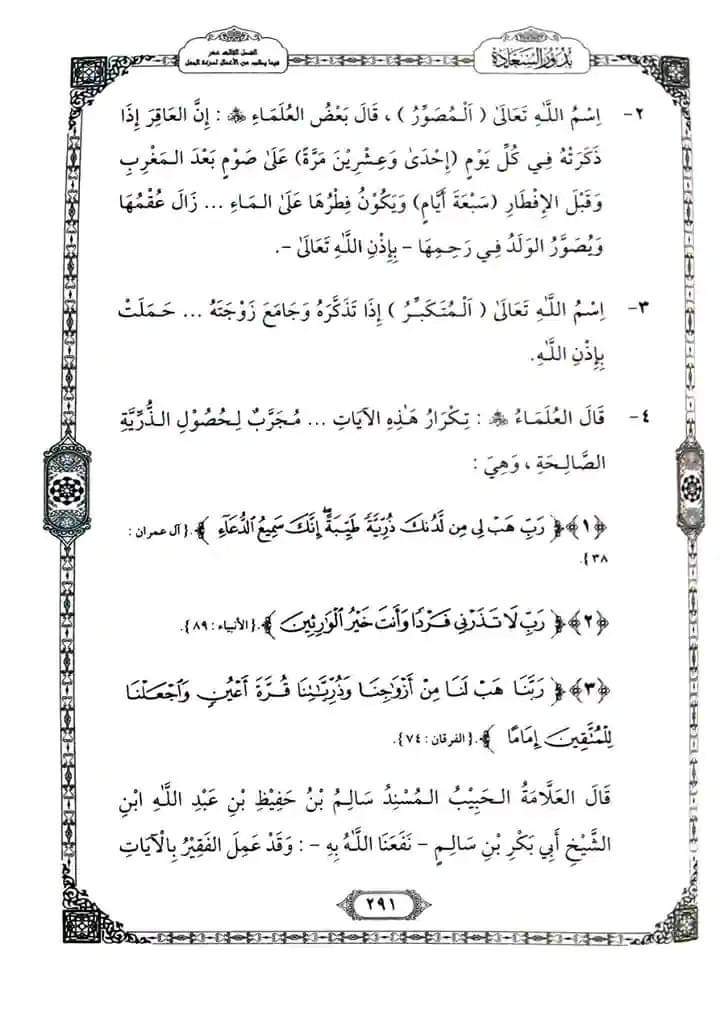 بُذُورُ السَّعَادَةِ
الفصل الثالث عشر
فيما يطلب من الأعمال لسرعة الحمل
٢- اِسْمُ اللَّهِ تَعَالَىٰ ( اَلْمُصَوِّرُ ) ، قَالَ بَعْضُ العُلَمَاءِ ﷺ : إِنَّ العَاقِرَ إِذَا
ذَكَرَتْهُ فِي كُلِّ يَوْمٍ (إِحْدَىٰ وَعِشْرِيْنَ مَرَّةً) عَلَىٰ صَوْمٍ بَعْدَ المَغْرِبِ
وَقَبْلَ الإِفْطَارِ (سَبْعَةَ أَيَّامٍ) وَيَكُوْنُ فِطْرُهَا عَلَىٰ المَاءِ ... زَالَ عُقْمُهَا
وَيُصَوَّرُ الوَلَدُ فِي رَحِمِهَا - بِإِذْنِ اللَّهِ تَعَالَىٰ -.
٣- اِسْمُ اللَّهِ تَعَالَىٰ ( اَلْمُتَكَبِّرُ ) إِذَا تَذَكَّرَهُ وَجَامَعَ زَوْجَتَهُ ... حَمَلَتْ
بِإِذْنِ اللَّهِ.
٤- قَالَ العُلَمَاءُ : تِكْرَارُ هَـٰذِهِ الآيَاتِ ... مُجَرَّبٌ لِحُصُوْلِ الذُّرِّيَّةِ
الصَّالِحَةِ ، وَهِيَ :
﴿١﴾ ﴿ رَبِّ هَبْ لِي مِن لَّدُنكَ ذُرِّيَّةً طَيِّبَةً ۖ إِنَّكَ سَمِيعُ الدُّعَآءِ ﴾.{آل عمران :
٣٨}.
﴿٢﴾ ﴿ رَبِّ لَا تَذَرْنِي فَرْدًا وَأَنتَ خَيْرُ الْوَارِثِينَ ﴾.{الأنبياء : ٨٩}.
﴿٣﴾ ﴿ رَبَّنَا هَبْ لَنَا مِنْ أَزْوَاجِنَا وَذُرِّيَّاتِنَا قُرَّةَ أَعْيُنٍ وَاجْعَلْنَا
لِلْمُتَّقِينَ إِمَامًا ﴾.{الفرقان : ٧٤}.
قَالَ العَلَّامَةُ الحَبِيْبُ المُسْنِدُ سَالِمُ بْنُ حَفِيْظِ بْنِ عَبْدِ اللَّهِ ابْنِ
الشَّيْخِ أَبِي بَكْرِ بْنِ سَالِمٍ - نَفَعَنَا اللَّهُ بِهِ - : وَقَدْ عَمِلَ الفَقِيْرُ بِالْآيَاتِ
٢٩١